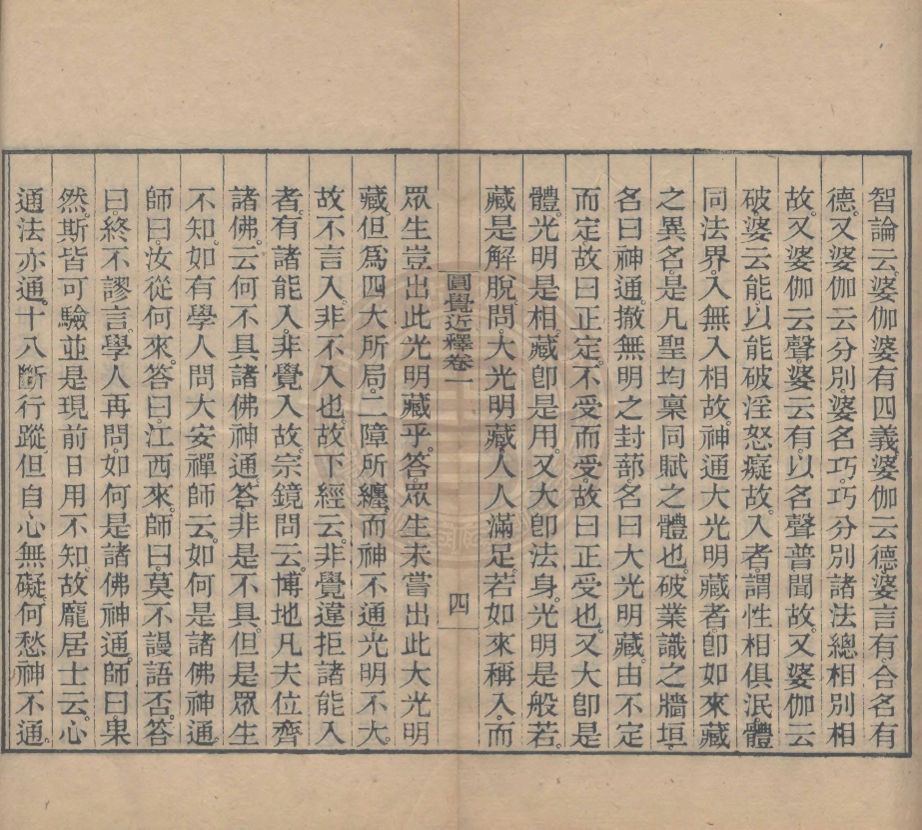 智論云。婆伽婆有四義。婆伽云德。婆言有。合名有
德。又婆伽云分別。婆名巧。巧分別諸法總相別相
故。又婆伽云聲。婆云有。以名聲普聞故。又婆伽云
破。婆云能。以能破淫怒癡故。入者謂性相俱泯。體
同法界。入無入相故。神通大光明藏者。卽如來藏
之異名。是凡聖均稟同賦之體也。破業識之牆垣。
名曰神通。撤無明之封蔀。名曰大光明藏。由不定
而定。故曰正定。不受而受。故曰正受也。又大卽是
體。光明是相。藏卽是用。又大卽法身。光明是般若。
藏是解脫。問。大光明藏。人人滿足。若如來稱入。而
圓覺近釋卷一 四
眾生豈出此光明藏乎。答。眾生未嘗出此大光明
藏。但爲四大所局。二障所纏。而神不通。光明不大。
故不言入。非不入也。故下經云。非覺違拒諸能入
者。有諸能入。非覺入故。宗鏡問云。博地凡夫。位齊
諸佛。云何不具諸佛神通。答。非是不具。但是眾生
不知。如有學人問大安禪師云。如何是諸佛神通。
師曰。汝從何來。答曰。江西來。師曰。莫不謾語否。答
曰。終不謬言。學人再問。如何是諸佛神通。師曰。果
然。斯皆可驗並是現前日用不知。故龐居士云。心
通法亦通。十八斷行蹤。但自心無礙。何愁神不通。